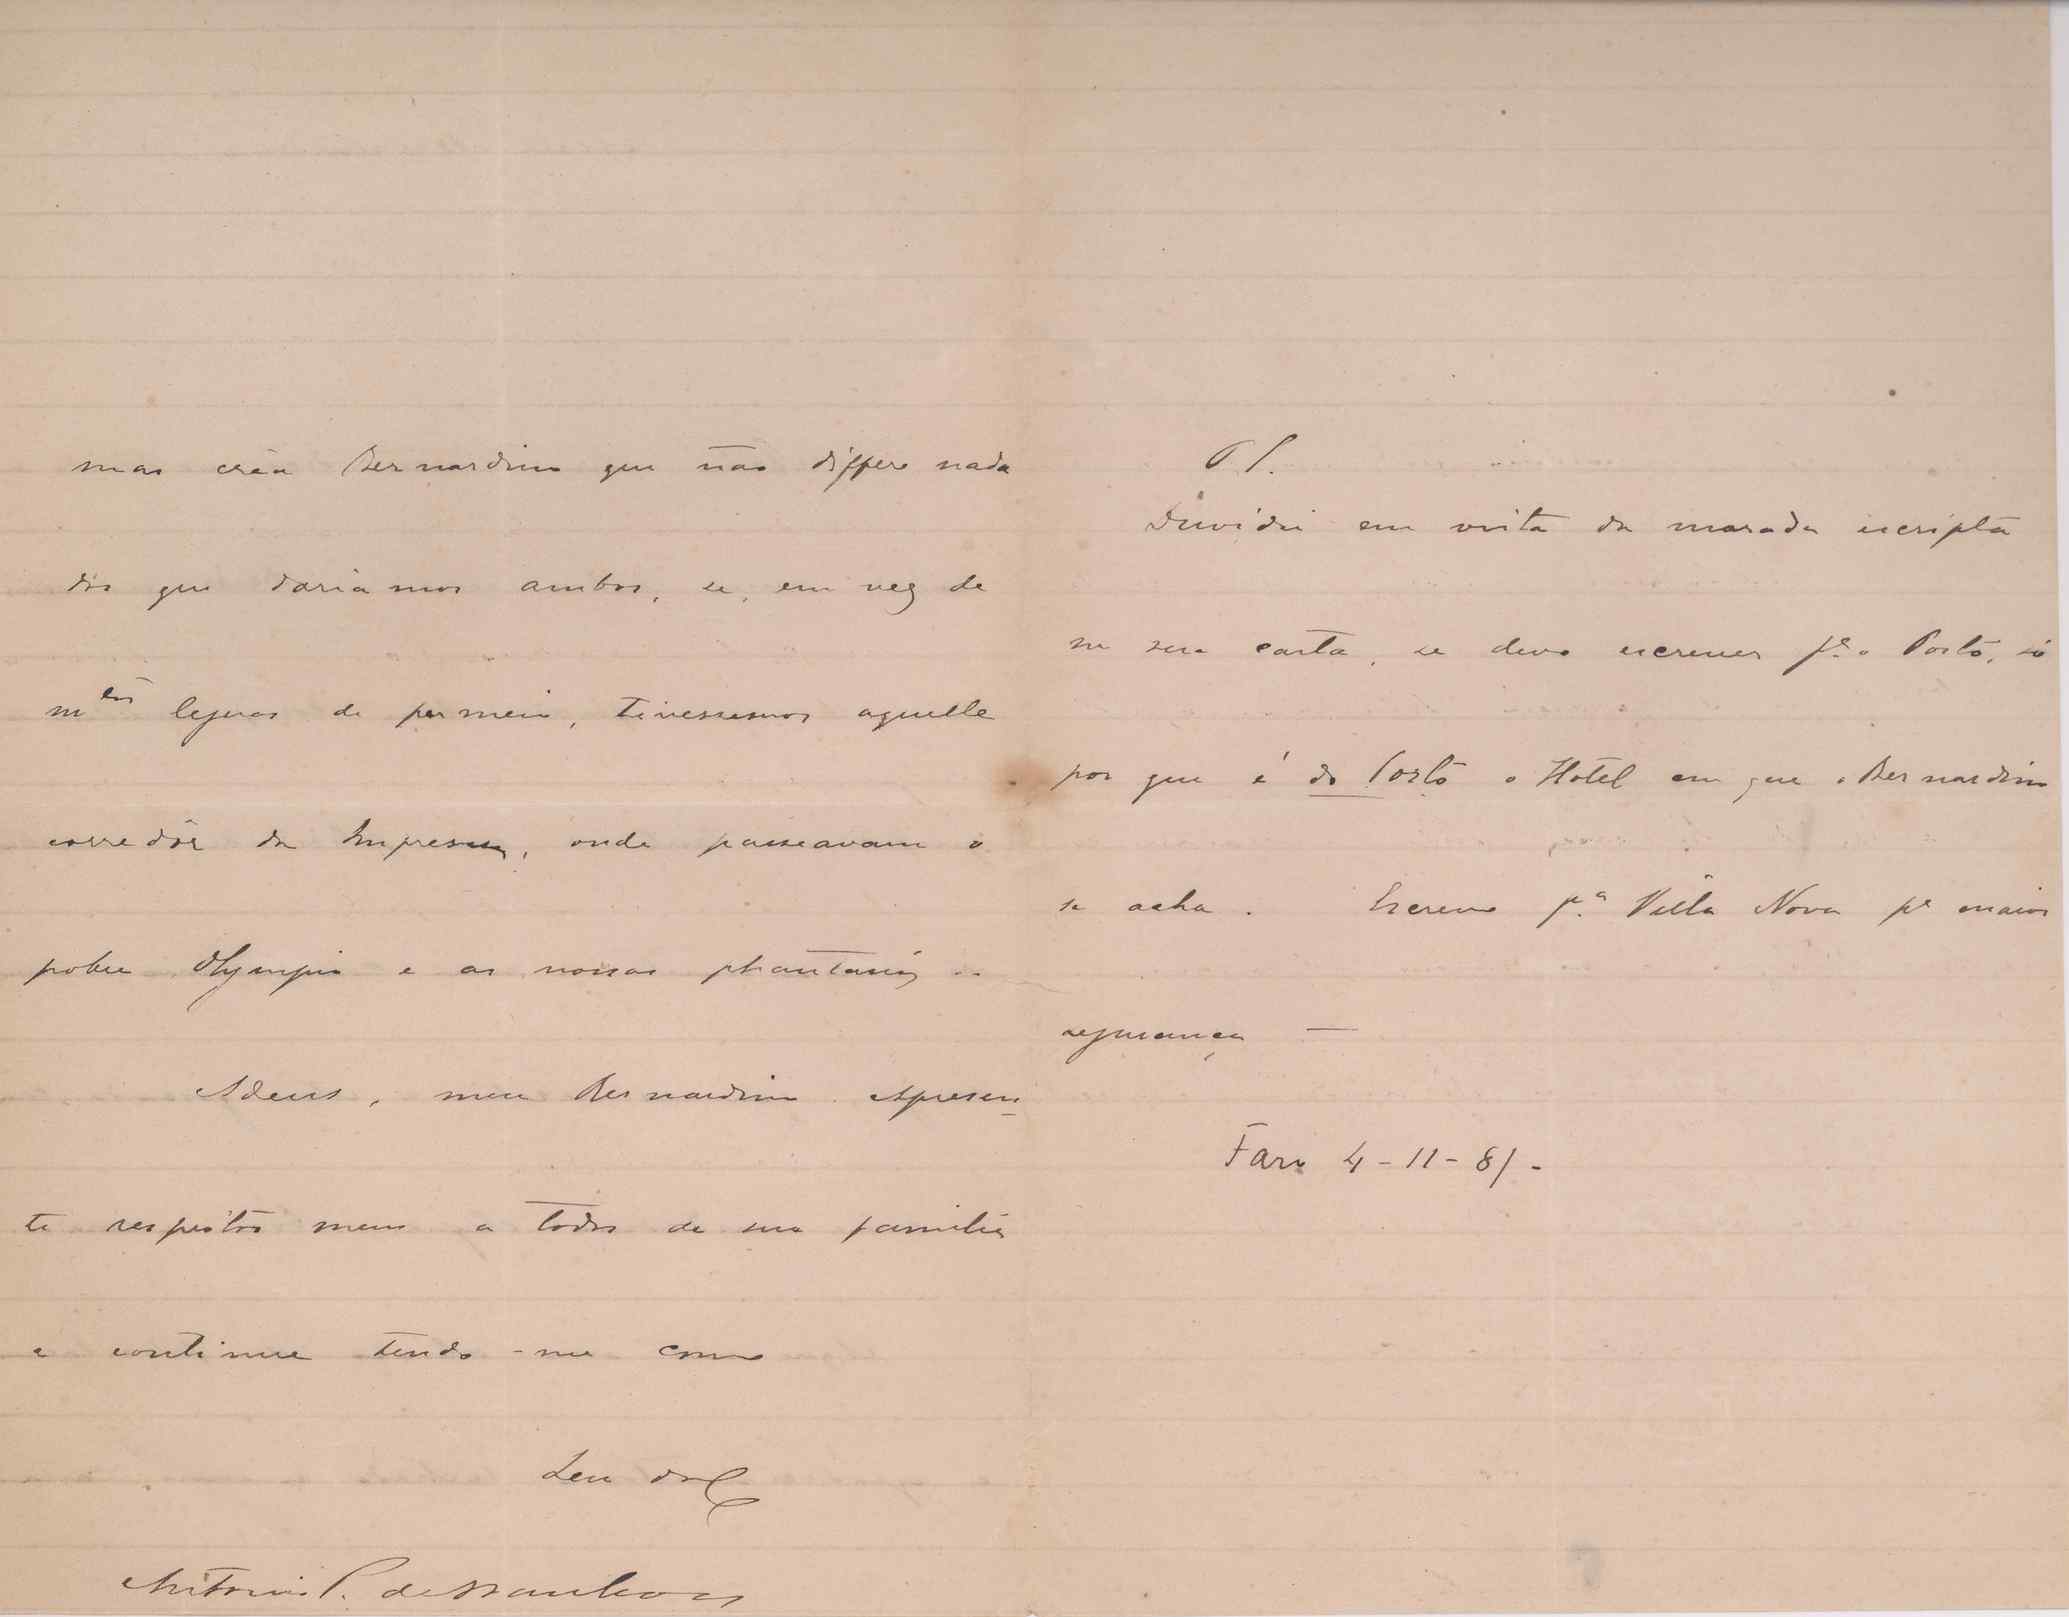 mas crêa Bernardino que não differe nada
dos que dariamos ambos, se, em vez de
m.tas leguas de permeio, tivessemos aquelle
corredôr da Imprensa, onde passeavam o
pobre Olympio e as nossas phantasias ..
Adeus, meu Bernardino. Apresen-
te respeitos meus a todos de sua familia
e continue tendo-me como
Seu
Antonio P. de
P.S.
Duvidei em vista da morada escripta
na sua carta, se devo escrever p.a o Porto, só
por que é do Porto o Hotel em que o Bernardino
se acha. Escrevo p.a Villa Nova p.a maior
segurança —
Faro 4-11-81-